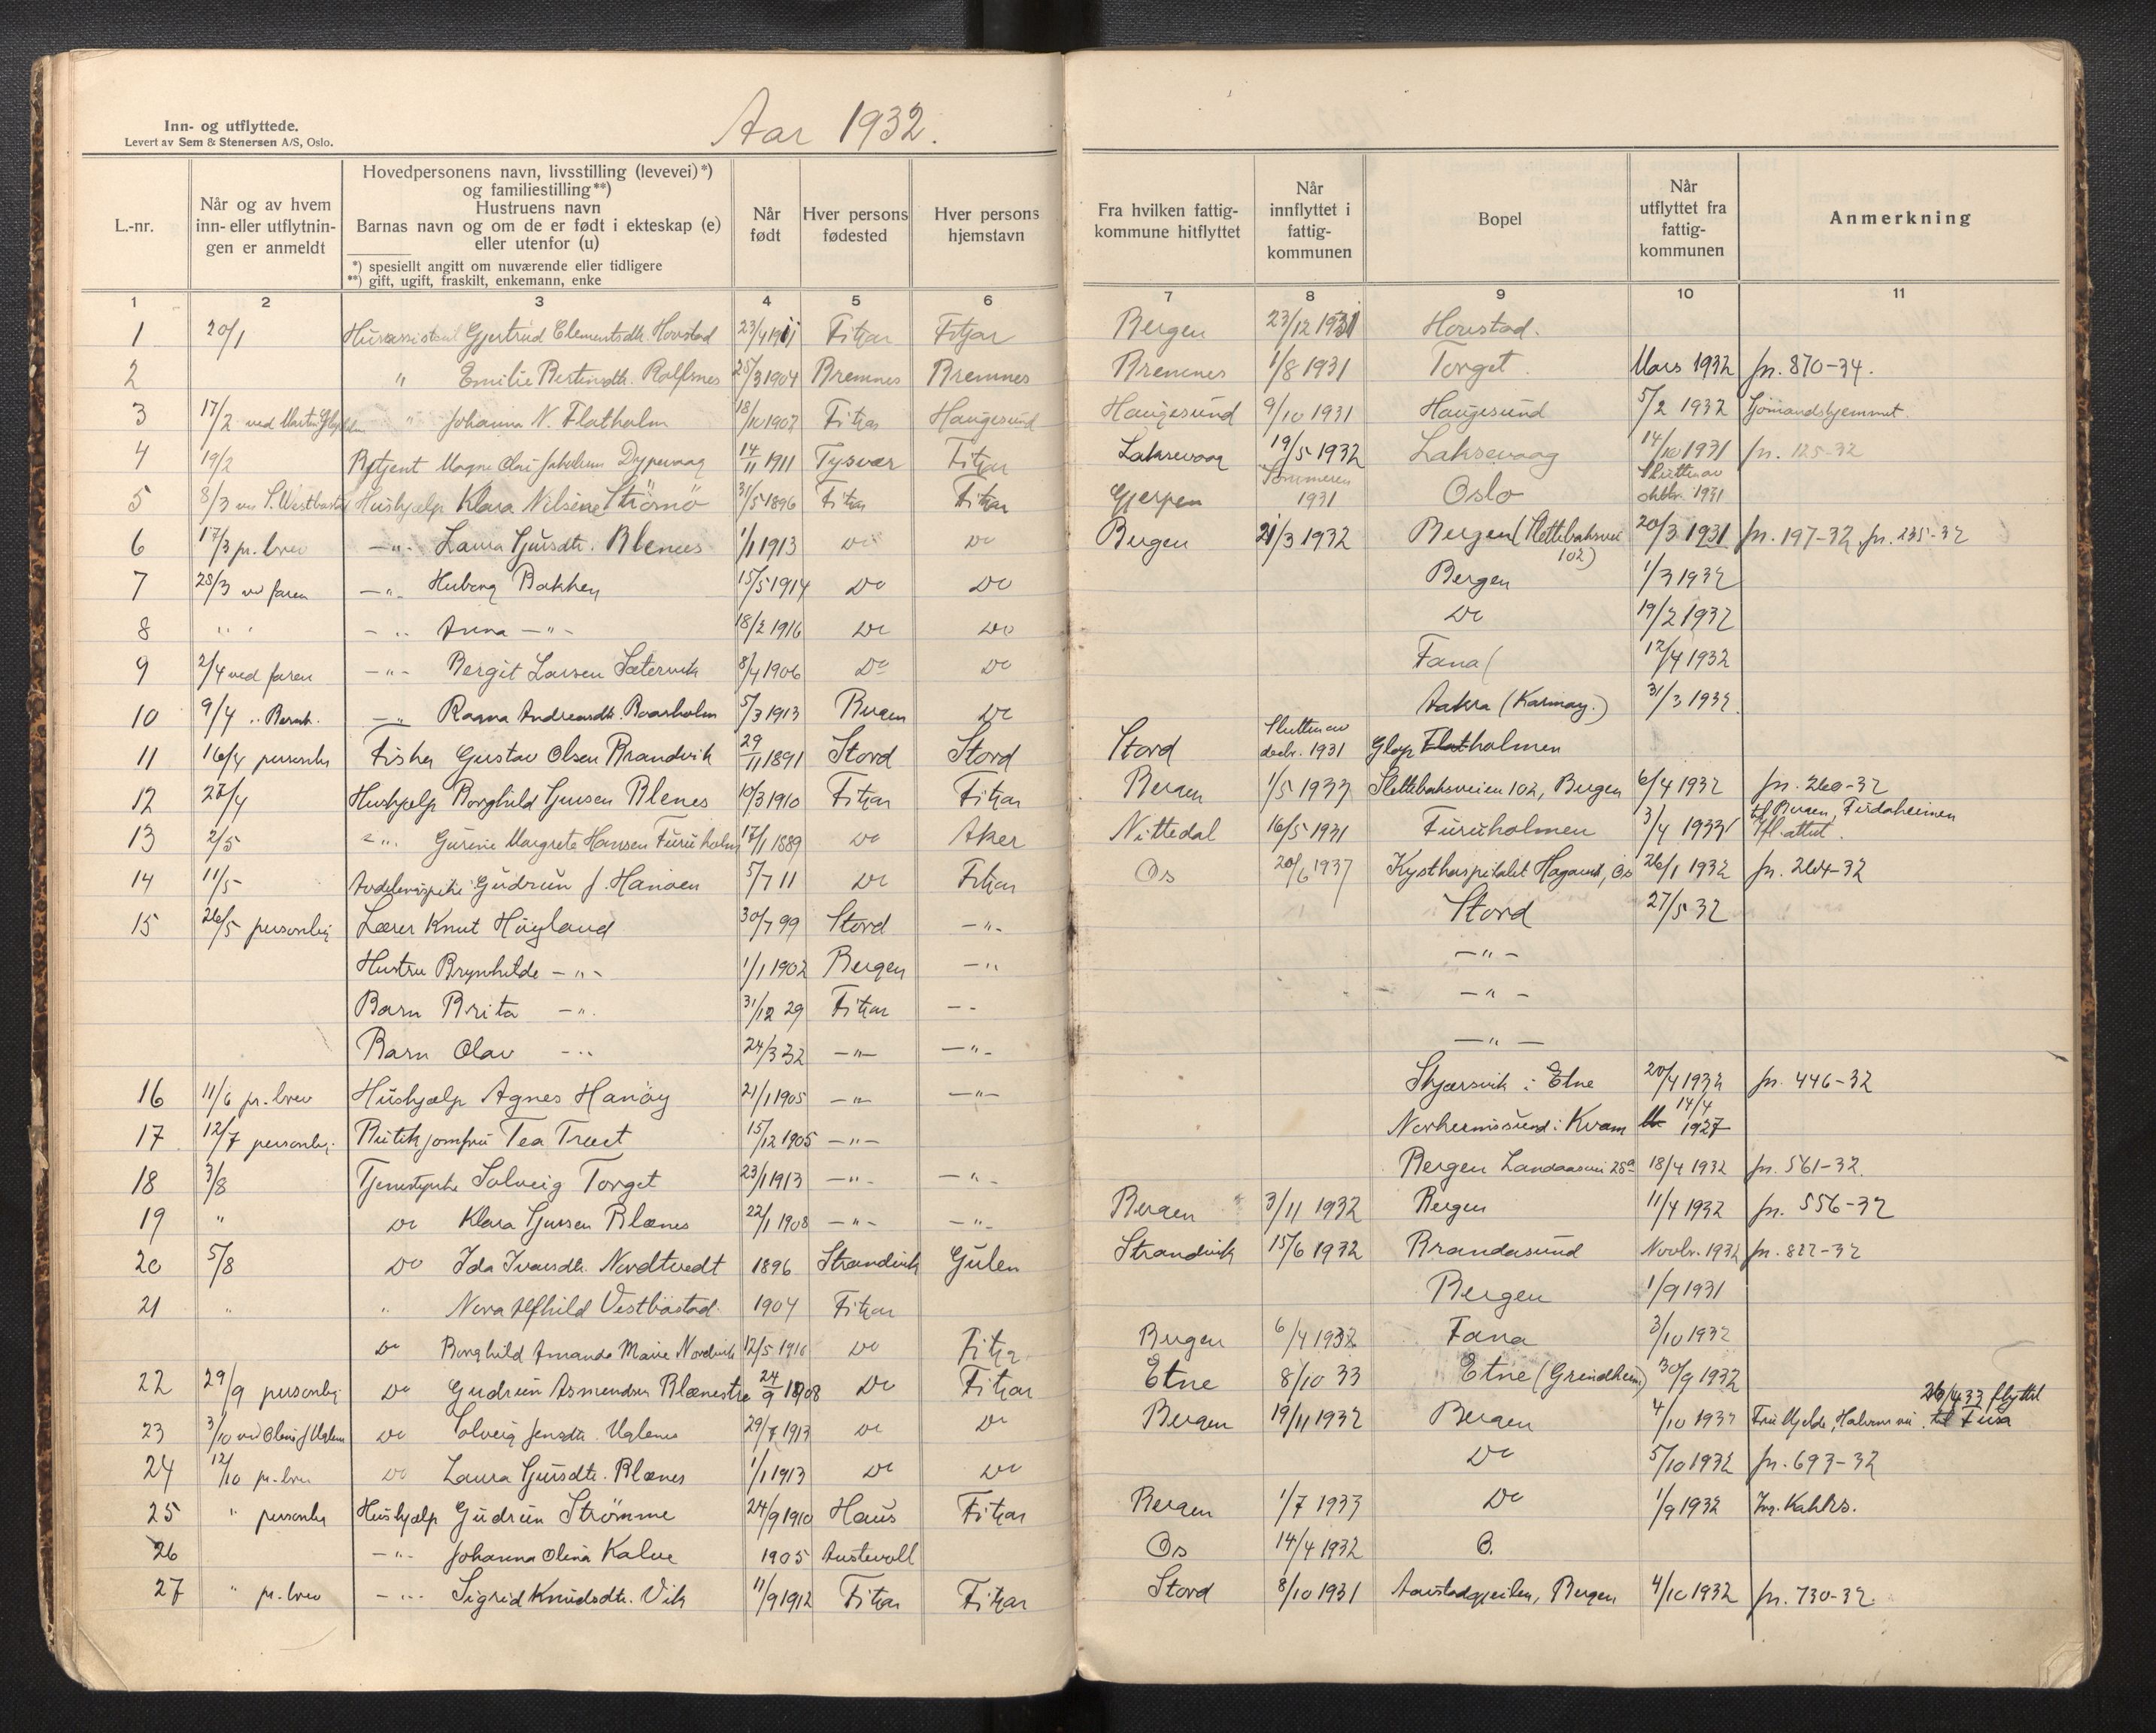 Aar 1932.
Inn- og utflyttede.
Levert av Sem & Stenersen A/S, Oslo.
L.-nr.
Når og av hvem inn- eller utflytnin- gen er anmeldt
Hovedpersonens navn, livsstilling (levevei)*)
og familiestilling**)
Hustruens navn
Barnas navn og om de er født i ekteskap (e)
eller utenfor (u)
*) spesiellt angitt om nuværende eller tidligere
**) gift, ugift, fraskilt, enkemann, enke
Når født
Hver persons fødested
Hver persons hjemstavn
Fra hvilken fattig- kommune hitflyttet
Når innflyttet i fattig- kommunen
Bopel
Når utflyttet fra fattig- kommunen
Anmerkning
1 2 3 4 5 6 7 8 9 10 11
1 20/1 Gjertrud Clementsdtr. Hovstad 23/4 1911 Fitjar Fitjar Bergen 23/12 1931 Hovstad.
2 " Emilie Bertinsdtr. Rolfsnes 25/3 1904 Bremnes Bremnes Bremnes 1/8 1931 Torget. Mars 1932 jn. 870-34.
3 17/2 ved " Johanna N. Flatholm 18/10 1902 Fitjar Haugesund Haugesund 9/10 1931 Haugesund 5/2 1932 Sjømandshjemmet.
4 19/2 Magne Olai Dypevaag 14/11 1911 Tysvær Fitjar Laksevaag 19/5 1932 Laksevaag 14/10 1931 jn. 125-32
5 8/3 Hushjælp Klara Nilsine Strömö 31/5 1896 Fitjar Fitjar Gjerpen Sommeren 1931 Oslo Slutten av oktbr. 1931
6 17/3 pr. brev -"- Laura Gjursdtr. Blenes 1/1 1913 Do Do Bergen 21/3 1932 Bergen (Slettebaksvei 102) 20/3 1931 jn. 197-32, jn. 235-32
7 23/3 ved faren -"- Huberg Bakken 15/5 1914 Do Do Bergen 1/3 1932
8 " " -"- Anna -"- 18/2 1916 Do Do Do 19/2 1932
9 2/4 ved faren -"- Bergit Larsen Sætervik 8/4 1906 Do Do Fana ( 12/4 1932
10 9/4 " Bernh. -"- Ragna Andreasdtr. Baarholm 5/3 1913 Bergen Do Aakra (Karmøy.) 31/3 1932.
11 16/4 personlig Fisker Gustav Olsen Brandvik 29/11 1891 Stord Stord Stord Slutten av decbr. 1931 Glop Flatholmen
12 27/4 Hushjelp Borghild Gjursen Blenes 10/3 1910 Fitjar Fitjar Bergen 1/5 1933 Slettebaksveien 102, Bergen 6/4 1932 jn. 260-32
13 2/5 -"- Gurine Margrete Hansen Furuholm 17/1 1889 Do Aker Nittedal 16/5 1931 Furuholmen 3/4 1933 til Bergen, Firdaheimen
14 11/5 Gudrun J. Hanøen 5/7 11 Do Fitjar Os 20/6 1937 Kysthospitalet Hagavik, Os 26/1 1932 jn. 264-32
15 26/5 personlig Lærer Knut Höyland 30/7 99 Stord -"- Stord 27/5 32
Hustru Brynhilde -"- 1/1 1902 Bergen -"- -"-
Barn Brita -"- 31/12 29 Fitjar -"- -"-
Barn Olav -"- 24/3 32 -"- -"- -"-
16 11/6 pr. brev Hushjælp Agnes Hanöy 21/1 1905 -"- -"- Skjærsvik i Etne 20/4 1932 jn. 446-32
17 12/7 personlig Butikjomfru Tea Træet 15/12 1905 -"- Norheimsund i Kvam 14/4 1927
18 3/8 Solveig Torget 23/1 1913 -"- -"- Bergen Landaasvei 28a 18/4 1932 jn. 561-32.
19 " Do Klara Gjursen Blænes 22/1 1908 -"- -"- Bergen 3/11 1932 Bergen 11/4 1932 jn. 556-32
20 5/8 Do Ida Ivarsdtr. Nordtvedt 1896 Strandvik Gulen Strandvik 15/6 1932 Brandasund Novbr. 1932 jn. 822-32
21 " " Nora Alfhild Vestbøstad. 1904 Fitjar Bergen 1/9 1931
Do Borghild Amanda Marie Nordvik 12/5 1916 Do Fitjar Bergen 6/4 1932 Fana 3/10 1932
22 29/9 personlig Do Gudrun Asmundsen Blænestre 24/9 1908 Do Fitjar Etne 8/10 33 Etne (Grindheim) 30/9 1932
23 3/10 ved Olens J Uglenes Do Solveig Jensdtr. Uglenes 29/7 1913 Do Do Bergen 19/11 1932 Bergen 4/10 1932 26/4 33 flyttet til Fusa
24 12/10 pr. brev Do Laura Gjursdtr. Blænes 1/1 1913 Do Do Do 5/10 1932 jn. 693-32
25 " personlig Hushjælp Gudrun Strömme 24/9 1910 Haus Fitjar Bergen 1/7 1933 Do 1/9 1932 Ing. Kahrs.
26 -"- Johanna Olina Kalve 1905 Austevoll Os 14/4 1932
27 " pr. brev -"- Sigrid Knudsdtr. Vik 11/9 1912 Fitjar Fitjar Stord 8/10 1931 Aarstadgeilen, Bergen 4/10 1932 jn. 730-32.